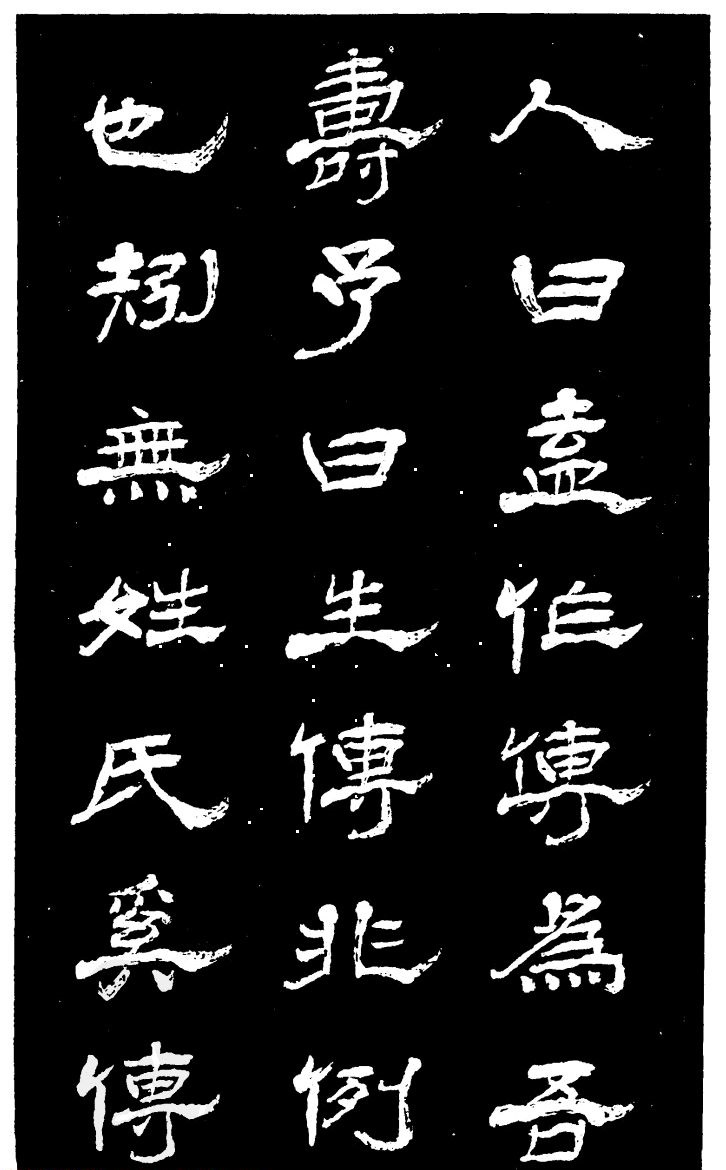 人曰盍作傳為吾
壽予曰生傳非例
也矧無姓氏奚傳